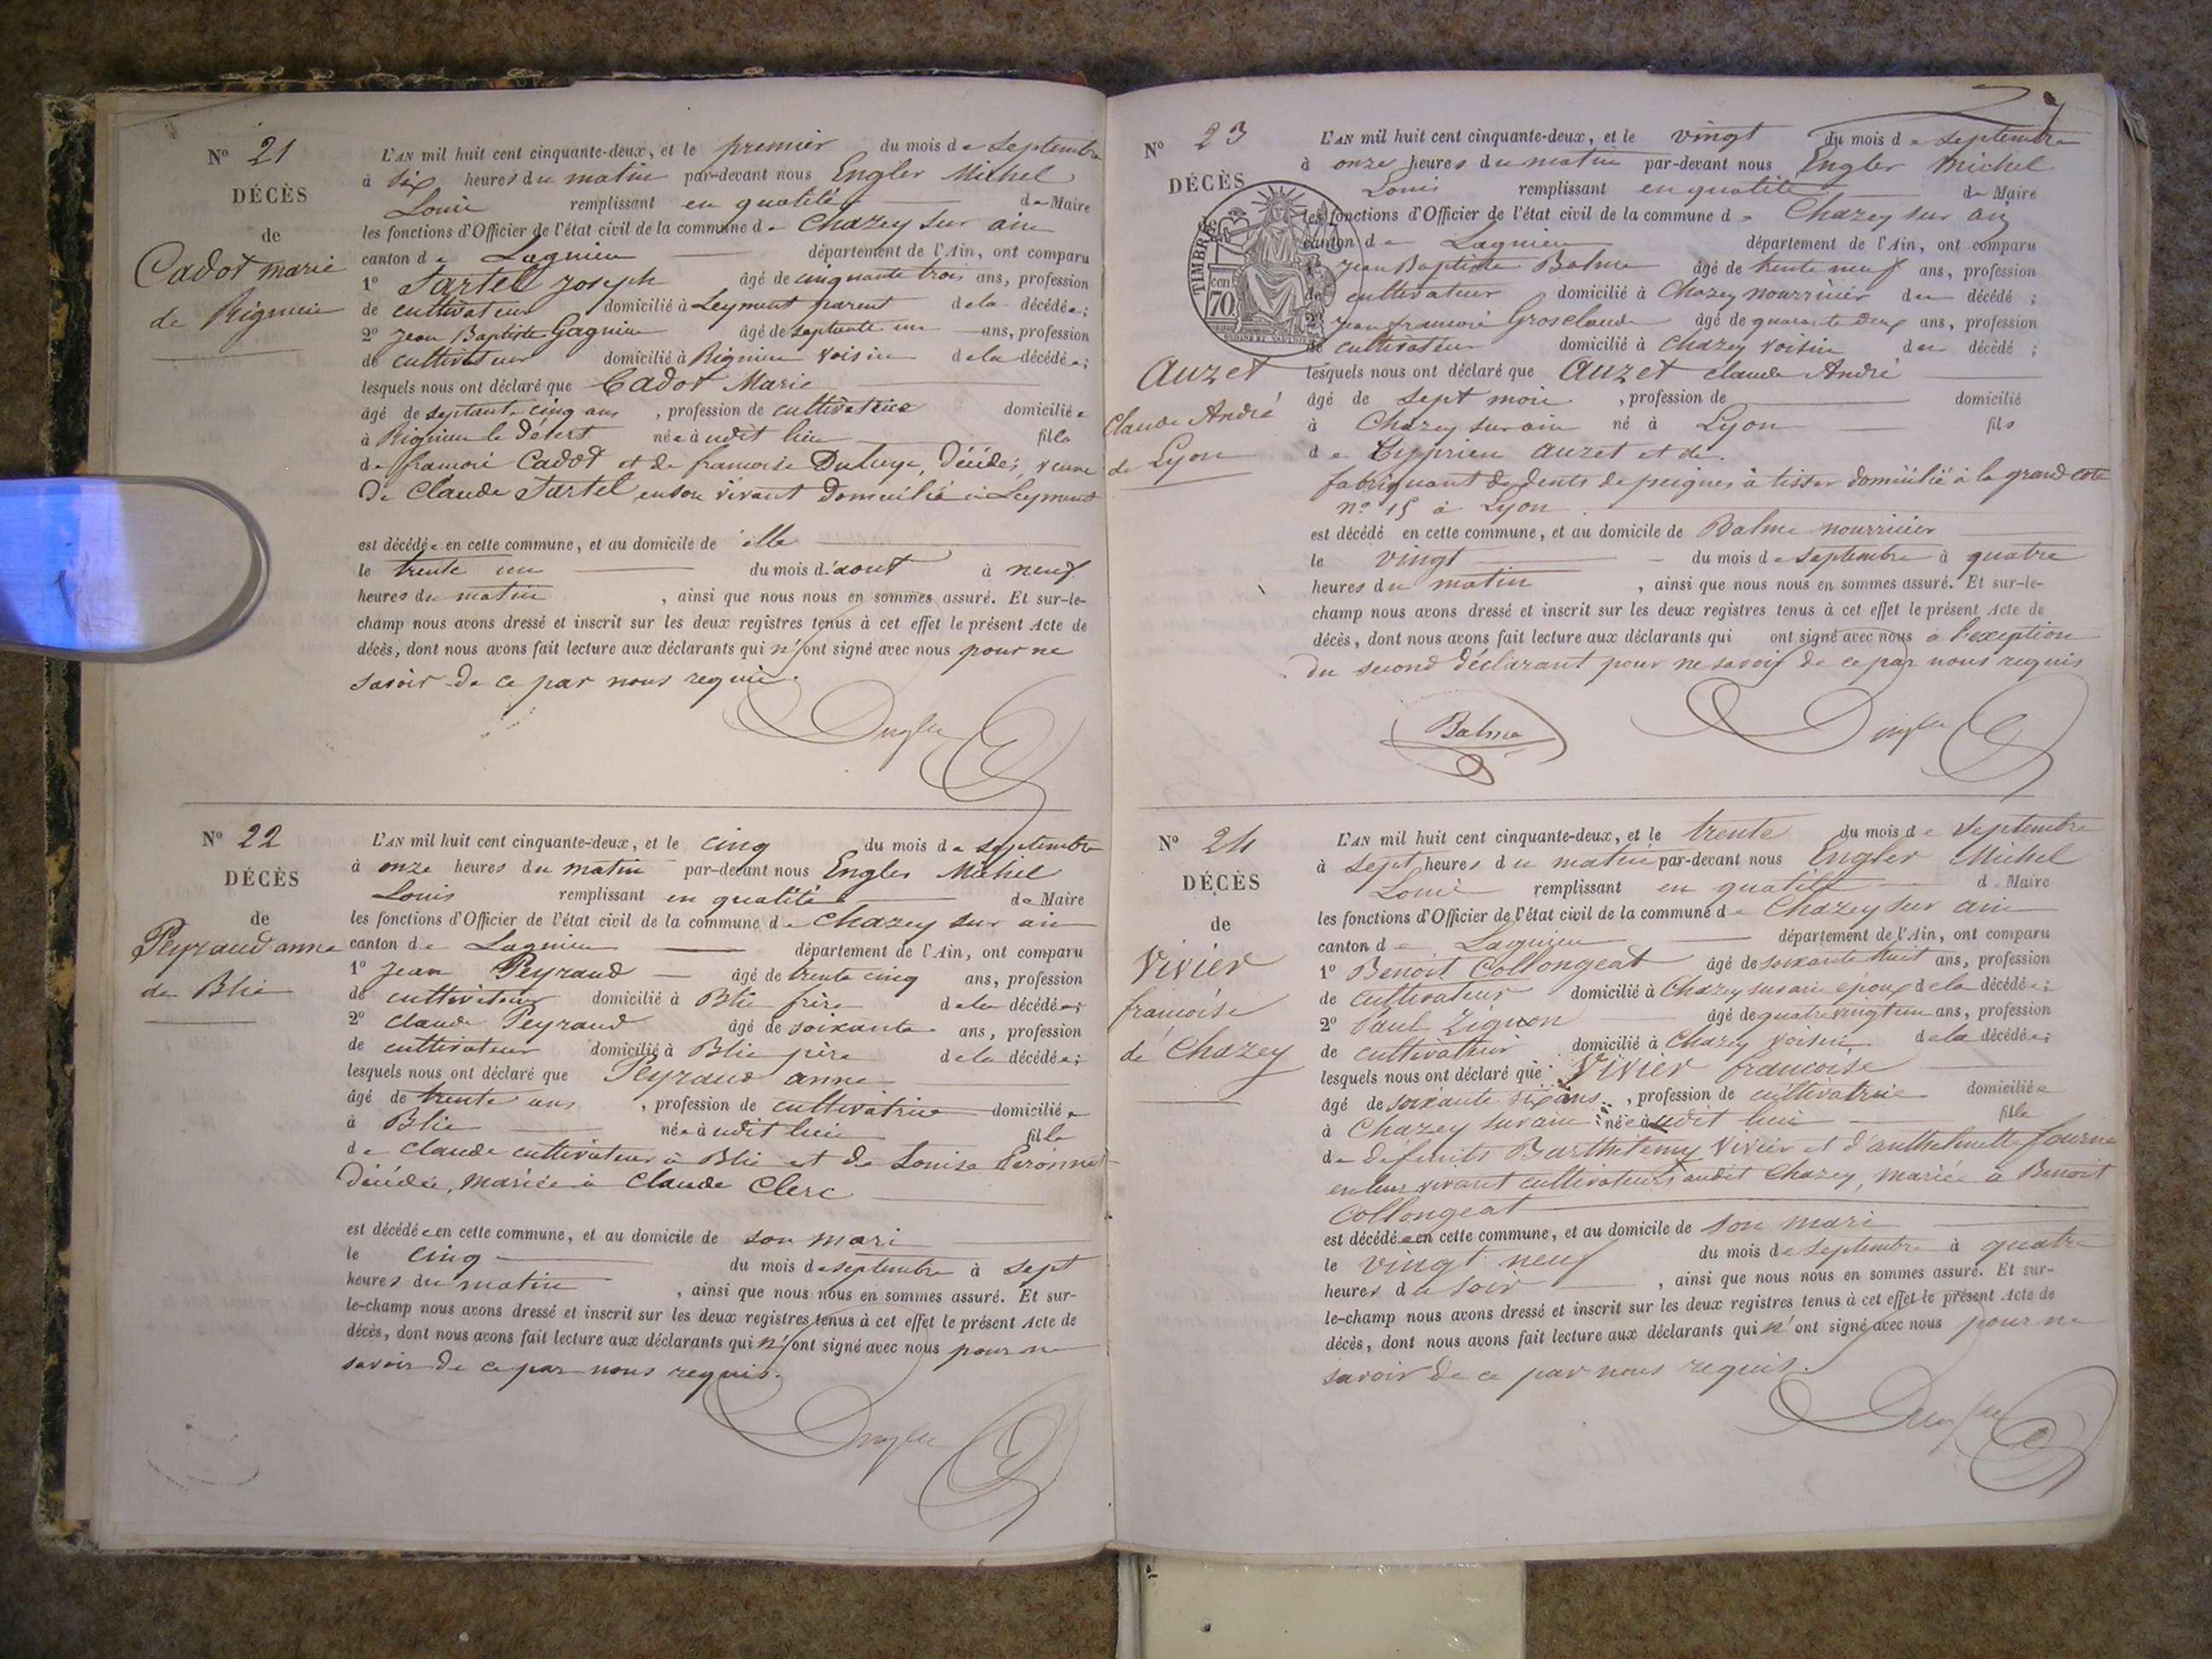 N° 21
DÉCÈS
de
Cadot marie
de Rignieu
L'AN mil huit cent cinquante-deux, et le premier du mois de septembre
à six heures du matin par-devant nous Engler Michel
Louis remplissant en qualité de Maire
les fonctions d'Officier de l'état civil de la commune de Chazey sur ain
canton de Lagnieu département de l'Ain, ont comparu
1° Jartel Joseph âgé de cinquante trois ans, profession
de cultivateur domicilié à Leyment parent de la décédée;
2° Jean Baptiste Gagnieu âgé de septante un ans, profession
de cultivateur domicilié à Rignieu voisin de la décédée;
lesquels nous ont déclaré que Cadot Marie
âgé de septante cinq ans, profession de cultivatrice domiciliée
à Rignieu le désert née à udit lieu fille
de francoi Cadot et de francoise décédés, veuve
De Claude Jartel en son vivant domicilié à Leyment
est décédée en cette commune, et au domicile de elle
le trente un du mois d'aout à neuf
heures du matin, ainsi que nous nous en sommes assuré. Et sur-le-
champ nous avons dressé et inscrit sur les deux registres tenus à cet effet le présent Acte de
décès, dont nous avons fait lecture aux déclarants qui n'ont signé avec nous pour ne
savoir de ce par nous requis.
Engler
N° 22
DÉCÈS
de
Peyraud anne
de Blie
L'AN mil huit cent cinquante-deux, et le cinq du mois de septembre
à onze heures du matin par-devant nous Engler Michel
Louis remplissant en qualité de Maire
les fonctions d'Officier de l'état civil de la commune de Chazey sur ain
canton de Lagnieu département de l'Ain, ont comparu
1° Jean Peyraud âgé de trente cinq ans, profession
de cultivateur domicilié à Blie frère de la décédée;
2° Claude Peyraud âgé de soixante ans, profession
de cultivateur domicilié à Blie père de la décédée;
lesquels nous ont déclaré que Peyraud anne
âgé de trente ans, profession de cultivatrice domiciliée
à Blie née à udit lieu fille
de Claude cultivateur à Blie et de Louise
Décédée, mariée à Claude Clerc
est décédée en cette commune, et au domicile de son mari
le cinq du mois de septembre à sept
heures du matin, ainsi que nous nous en sommes assuré. Et sur-
le-champ nous avons dressé et inscrit sur les deux registres tenus à cet effet le présent Acte de
décès, dont nous avons fait lecture aux déclarants qui n'ont signé avec nous pour ne
savoir de ce par nous requis.
Engler
N° 23
DÉCÈS
TIMBRE
70
Auzet
Claude André
de Lyon
L'AN mil huit cent cinquante-deux, et le vingt du mois de septembre
à onze heures du matin par-devant nous Engler Michel
Louis remplissant en qualité de Maire
les fonctions d'Officier de l'état civil de la commune de Chazey sur ain
canton de Lagnieu département de l'Ain, ont comparu
1° Jean Baptiste Balme âgé de trente neuf ans, profession
de cultivateur domicilié à Chazey nourricier du décédé;
2° Jean francoi Grosclaude âgé de quarante deux ans, profession
de cultivateur domicilié à Chazey voisin du décédé;
lesquels nous ont déclaré que Auzet Claude André
âgé de sept mois, profession de domicilié
à Chazey sur ain né à Lyon fils
de Cyprien Auzet et de
fabriquant de dents de peignes à tisser domicilié à la grand cote
n° 15 à Lyon
est décédé en cette commune, et au domicile de Balme nourricier
le vingt du mois de septembre à quatre
heures du matin, ainsi que nous nous en sommes assuré. Et sur-le-
champ nous avons dressé et inscrit sur les deux registres tenus à cet effet le présent Acte de
décès, dont nous avons fait lecture aux déclarants qui ont signé avec nous à l'exeption
du second déclarant pour ne savoir de ce par nous requis
Balme Engler
N° 24
DÉCÈS
de
Vivier
francoise
de Chazey
L'AN mil huit cent cinquante-deux, et le trente du mois de septembre
à sept heures du matin par-devant nous Engler Michel
Louis remplissant en qualité de Maire
les fonctions d'Officier de l'état civil de la commune de Chazey sur ain
canton de Lagnieu département de l'Ain, ont comparu
1° Benoit Collongeat âgé de soixante huit ans, profession
de cultivateur domicilié à Chazey sur ain époux de la décédée;
2° Paul Zignon âgé de quatre vingt un ans, profession
de cultivateur domicilié à Chazey voisin de la décédée;
lesquels nous ont déclaré que Vivier francoise
âgé de soixante six ans, profession de cultivatrice domiciliée
à Chazey sur ain née à udit lieu fille
de défunts Barthélemy Vivier et d'anthelmette
en leur vivant cultivateurs audit Chazey, mariée à Benoit
Collongeat
est décédée en cette commune, et au domicile de son mari
le vingt neuf du mois de septembre à quatre
heures du soir, ainsi que nous nous en sommes assuré. Et sur-
le-champ nous avons dressé et inscrit sur les deux registres tenus à cet effet le présent Acte de
décès, dont nous avons fait lecture aux déclarants qui n'ont signé avec nous pour ne
savoir de ce par nous requis.
Engler